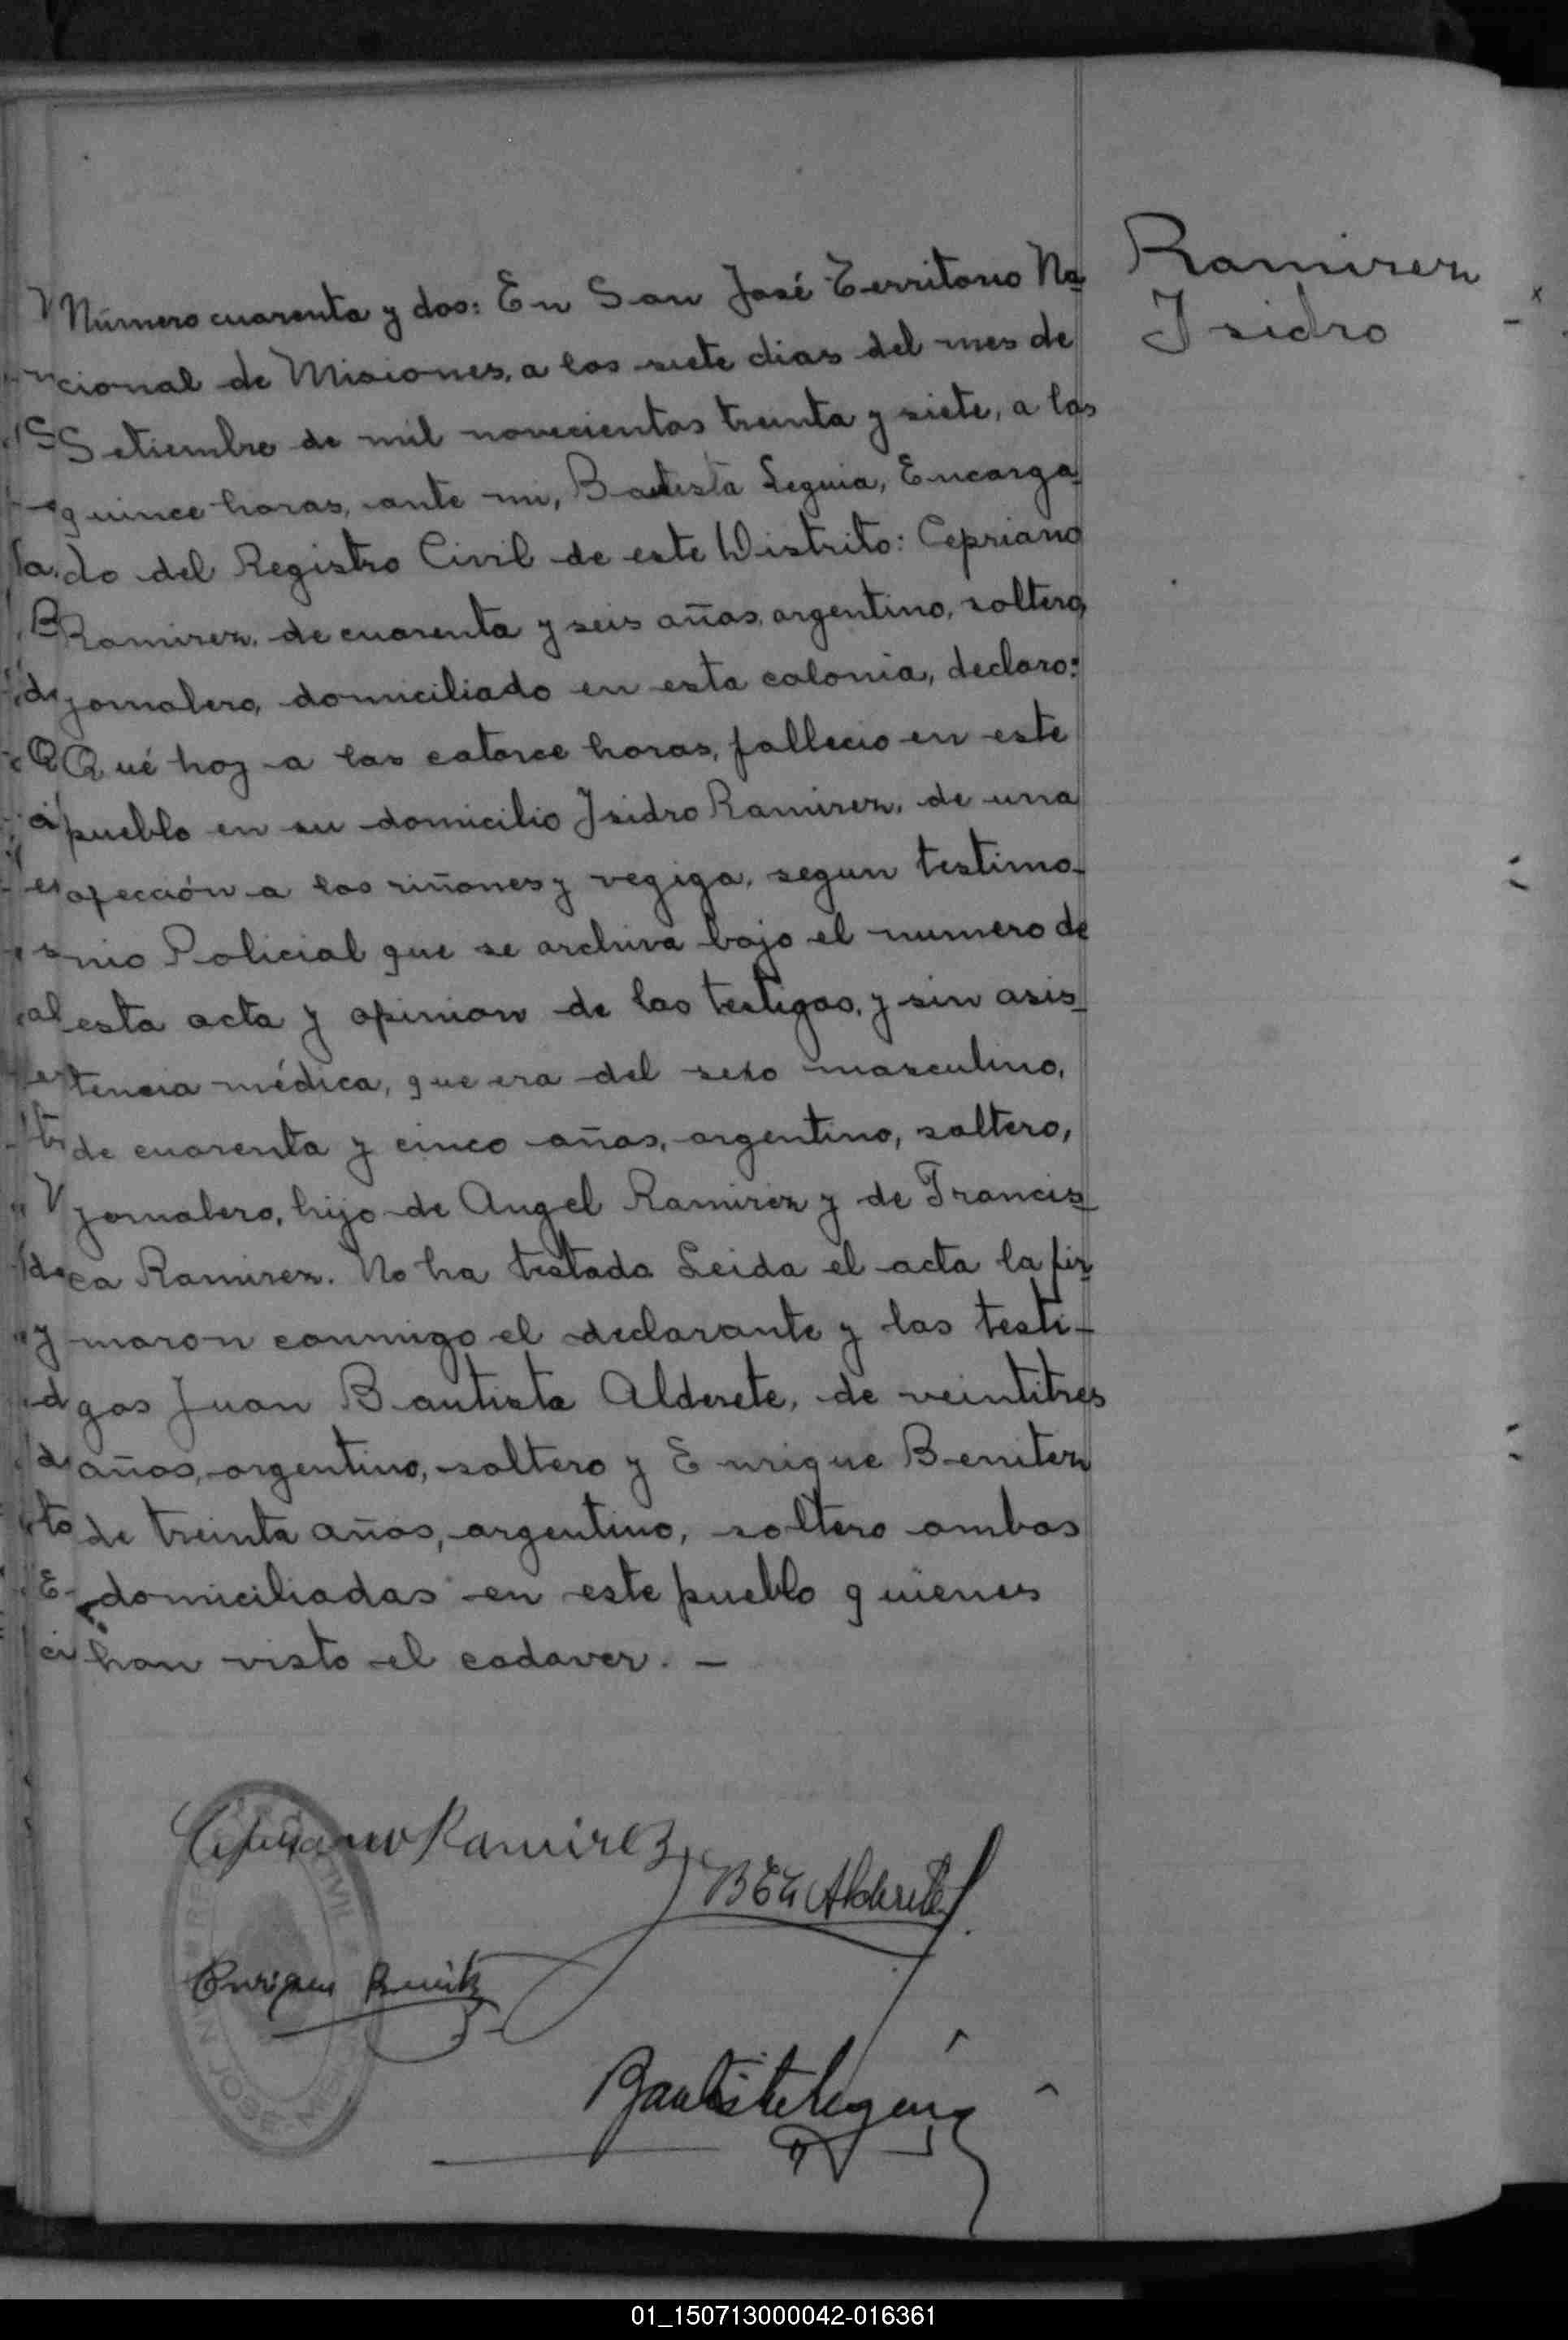 Ramirez
Isidro
Número cuarenta y dos: En San José Territorio Na
cional de Misiones, a los siete dias del mes de
Setiembre de mil novecientos treinta y siete, a las
quince horas, ante mi, Bautista Leguia, Encarga
do del Registro Civil de este Distrito: Cepriano
Ramirez, de cuarenta y seis años, argentino, soltero,
jornalero, domiciliado en esta colonia, declaro:
Qué hoy a las catorce horas, fallecio en este
pueblo en su domicilio Isidro Ramirez, de una
afección a los riñones y vegiga, segun testimo-
nio Policial que se archiva bajo el numero de
esta acta y opinion de los testigos, y sin asis-
tencia médica, que era del sexo masculino,
de cuarenta y cinco años, argentino, soltero,
jornalero, hijo de Angel Ramirez y de Francis-
ca Ramirez. No ha testado Leida el acta la fir
maron conmigo el declarante y los testi-
gos Juan Bautista Alderete, de veintitres
años, argentino, soltero y Enrique Benitez
de treinta años, argentino, soltero ambos
domiciliados en este pueblo quienes
han visto el cadaver. -
Cipriano Ramirez
Bta Alderete
Enrique Benitez
Bautista Leguia
CIVIL
SAN JOSE
01_150713000042-016361